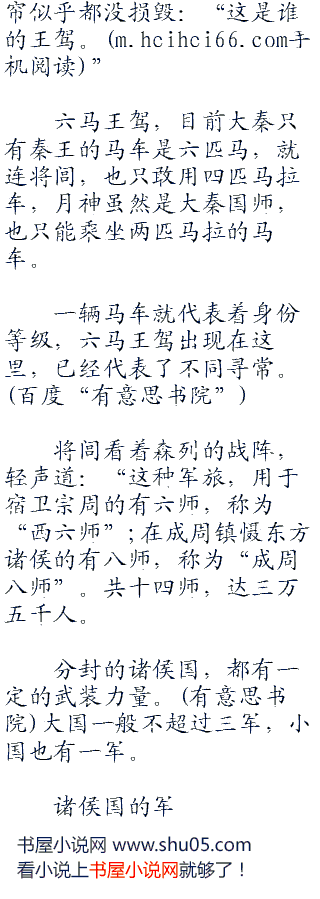 帘似乎都没损毁：“这是谁
的王驾。(m.hcihci66.com手
机阅读)”
六马王驾，目前大秦只
有秦王的马车是六匹马，就
连将闾，也只敢用四匹马拉
车，月神虽然是大秦国师，
也只能乘坐两匹马拉的马
车。
一辆马车就代表着身份
等级，六马王驾出现在这
里，已经代表了不同寻常。
(百度“有意思书院”)
将闾看着森列的战阵，
轻声道：“这种军旅，用于
宿卫宗周的有六师，称为
“西六师”；在成周镇慑东方
诸侯的有八师，称为“成周
八师”。共十四师，达三万
五千人。
分封的诸侯国，都有一
定的武装力量。(有意思书
院)大国一般不超过三军，小
国也有一军。
诸侯国的军
书屋小说网 www.shu05.com
看小说上书屋小说网就够了！